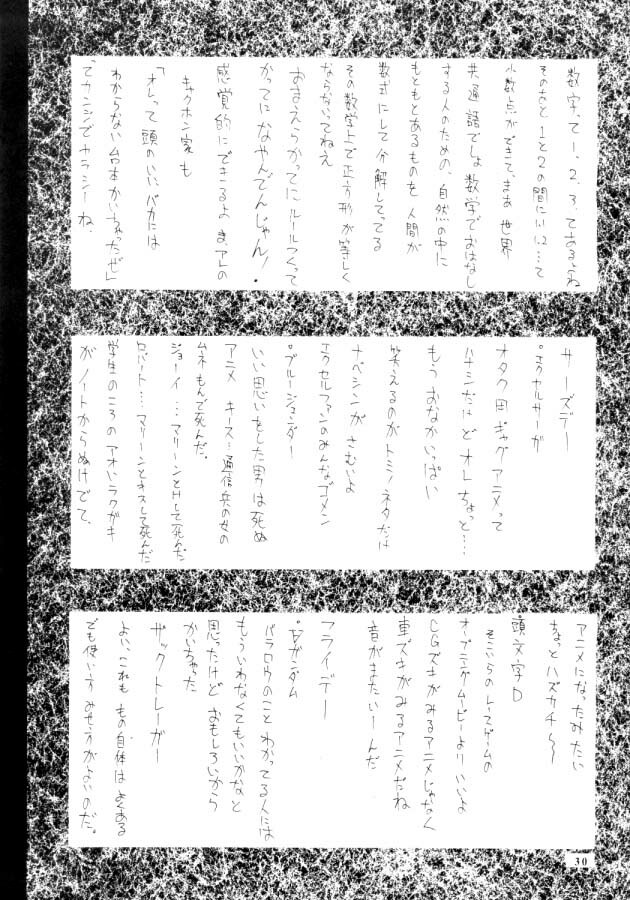 数字、て1、2、3、てあるよね
そのあと1と2の間に1.1、1.2…って
小数点ができて、まあ世界
共通語でしょ数学でおはなし
する人のための、自然の中に
もともとあるものを人間が
数式にして分解してってる
その数学上で正方形が等しく
ならないってねえ
おまえらかってにルールつくって
かってになやんでんじゃん!・
感覚的にできるよま、アレの
キャクホン家も
「オレって頭のいいバカには
わからない台本かいちゃったぜ」
てカンジでヤラシーね、
サーズデー
°エクセルサーガ
オタク用ギャグアニメって
ハナシだけどオレちょっと…
もうおなかいっぱい
笑えるのがトミノネタだけ
ナベシンがさむいよ
エクセルファンのみんなゴメン
°ブルージェンダー
いい思いをした男は死ぬ
アニメ キース…通信兵の女の
ムネもんで死んだ。
ジョーイ…マリーンとHして死んだ
ロバート…マリーンとキスして死んだ
学生のころのアオいラクガキ
がノートからぬけでて、
アニメになったみたいに
ちょっとハズカチ〜〜
頭文字D
そこいらのレースゲームの
オープニングムービーよりいいよ
CGズキがみるアニメじゃなく
車ズキがみるアニメだね
音がまたいーんだ
フライデー
°∀ガンダム
バラロウのことわかってる人には
もういわなくてもいいかなと
思ったけどおもしろいから
かいちゃった
ザックトレーガー
よい、これももの自体はよくある
でも使いうみせ方がよいのだ。
30